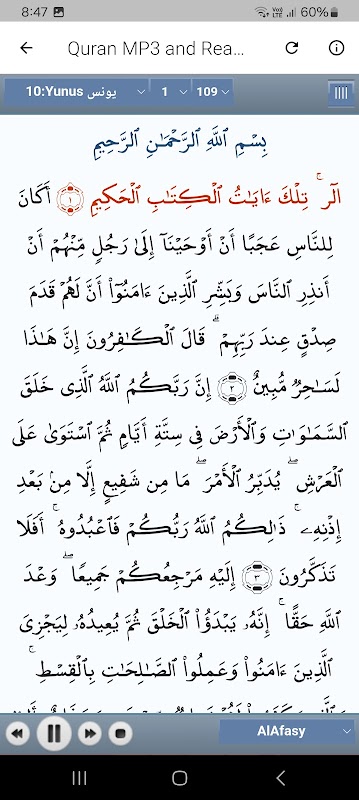 8:47 60%
Quran MP3 and Rea...
10:Yunus يونس 1 109
بِسْمِ ٱللَّهِ ٱلرَّحْمَـٰنِ ٱلرَّحِيمِ
الٓر ۚ تِلْكَ ءَايَـٰتُ ٱلْكِتَـٰبِ ٱلْحَكِيمِ ١ أَكَانَ
لِلنَّاسِ عَجَبًا أَنْ أَوْحَيْنَآ إِلَىٰ رَجُلٍ مِّنْهُمْ أَنْ
أَنذِرِ ٱلنَّاسَ وَبَشِّرِ ٱلَّذِينَ ءَامَنُوٓا۟ أَنَّ لَهُمْ قَدَمَ
صِدْقٍ عِندَ رَبِّهِمْ ۗ قَالَ ٱلْكَـٰفِرُونَ إِنَّ هَـٰذَا
لَسَـٰحِرٌ مُّبِينٌ ٢ إِنَّ رَبَّكُمُ ٱللَّهُ ٱلَّذِى خَلَقَ
ٱلسَّمَـٰوَٰتِ وَٱلْأَرْضَ فِى سِتَّةِ أَيَّامٍ ثُمَّ ٱسْتَوَىٰ عَلَى
ٱلْعَرْشِ ۖ يُدَبِّرُ ٱلْأَمْرَ ۖ مَا مِن شَفِيعٍ إِلَّا مِنۢ بَعْدِ
إِذْنِهِۦ ۚ ذَٰلِكُمُ ٱللَّهُ رَبُّكُمْ فَٱعْبُدُوهُ ۚ أَفَلَا
تَذَكَّرُونَ ٣ إِلَيْهِ مَرْجِعُكُمْ جَمِيعًا ۖ وَعْدَ
ٱللَّهِ حَقًّا ۚ إِنَّهُۥ يَبْدَؤُا۟ ٱلْخَلْقَ ثُمَّ يُعِيدُهُۥ لِيَجْزِىَ
ٱلَّذِينَ ءَامَنُوا۟ وَعَمِلُوا۟ ٱلصَّـٰلِحَـٰتِ بِٱلْقِسْطِ ۚ
AlAfasy